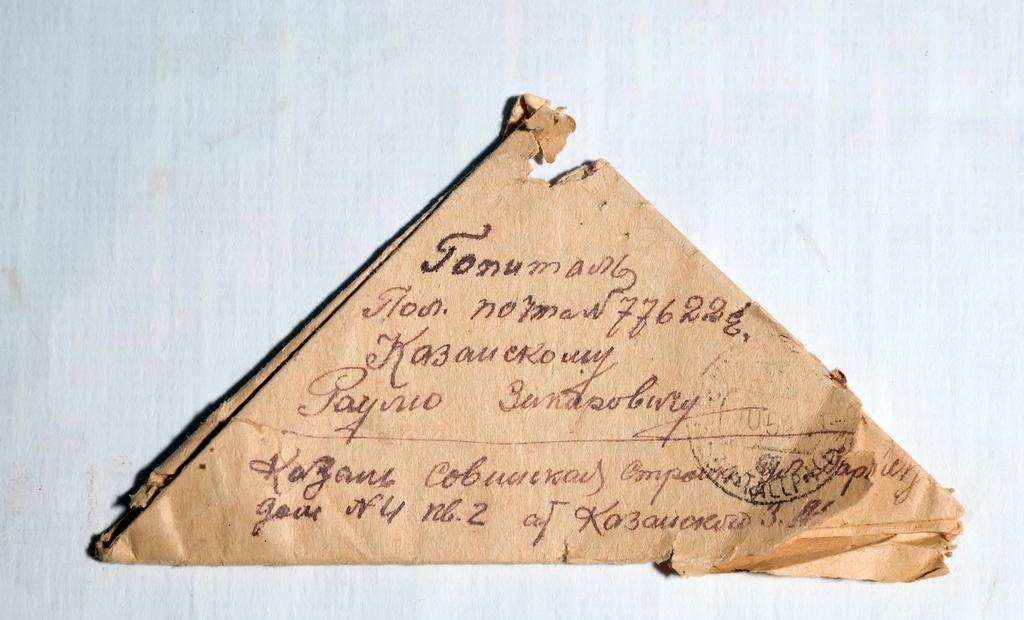 Гопиталь
Пол. почта N 77622
Казанскому
Раулю Закаровичу
Казань совинская строи ул.
дом N 4 кв. 2 от Казанского З.